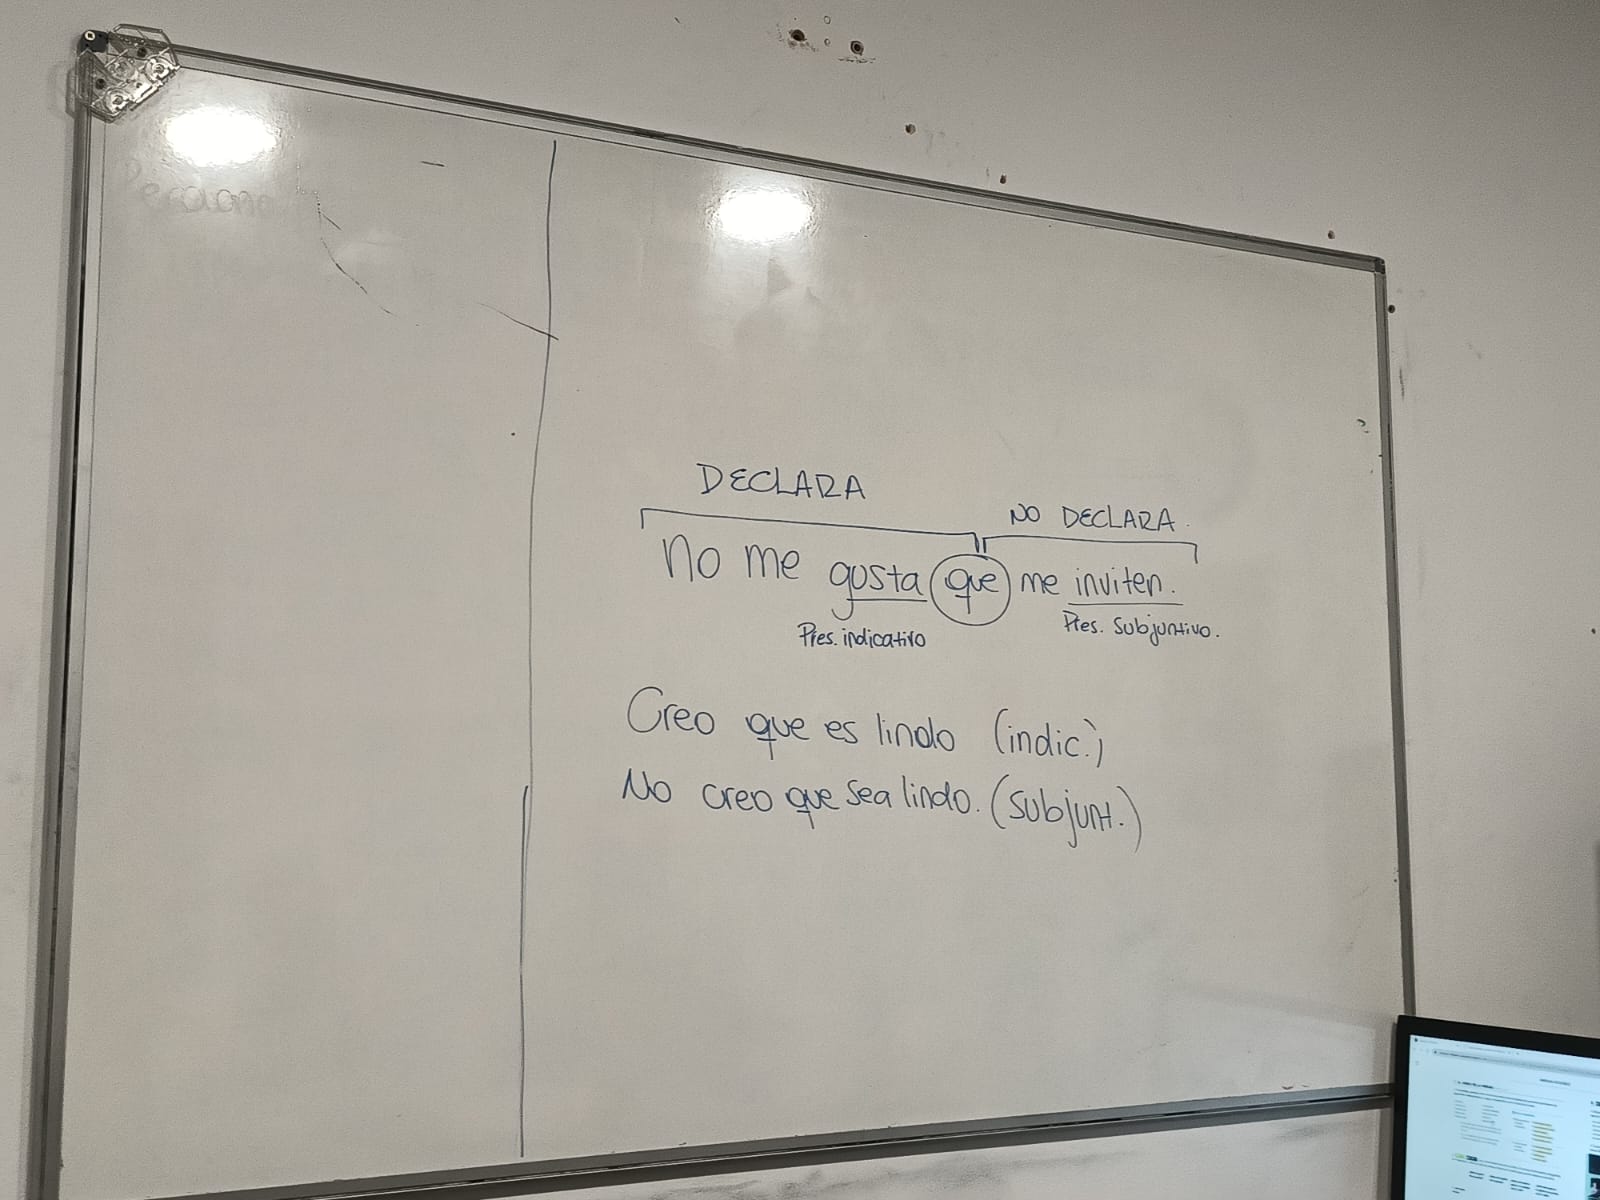 DECLARA
NO DECLARA.
no me gusta que me inviten.
Pres. indicativo
Pres. Subjuntivo.
Creo que es lindo (indic.)
No creo que sea lindo. (subjunt.)